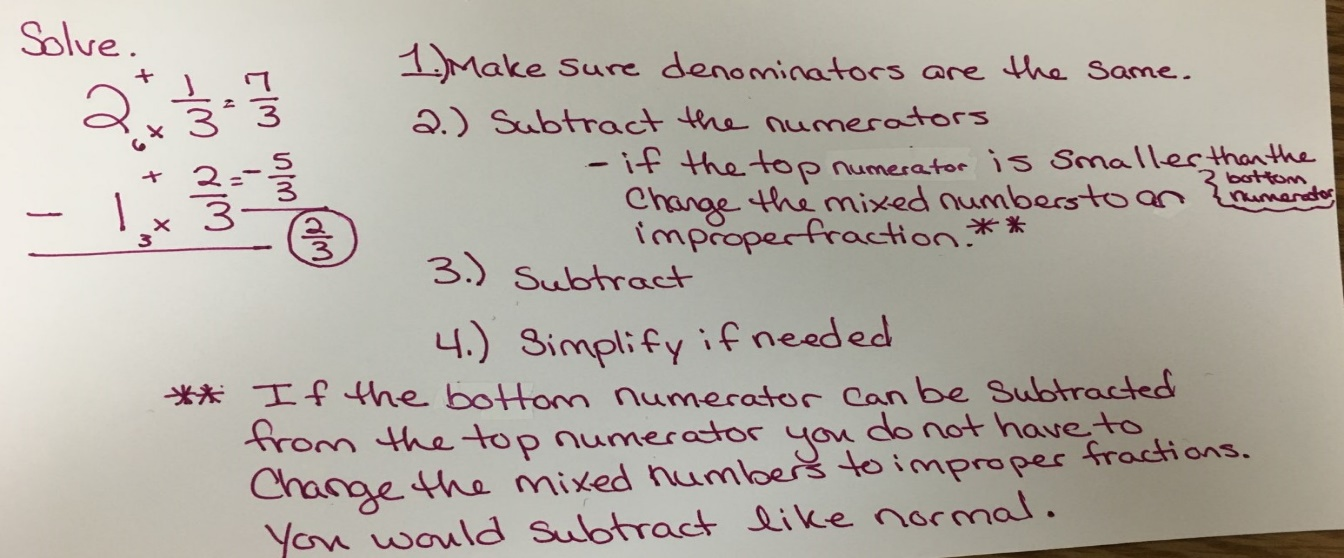 Solve.
2 6 x + 1/3 = 7/3
- 1 3 x + 2/3 = - 5/3
2/3
1.) Make sure denominators are the same.
2.) Subtract the numerators
- if the top numerator is smaller than the
bottom
numerator
Change the mixed numbers to an
improper fraction.**
3.) Subtract
4.) Simplify if needed
** If the bottom numerator can be subtracted
from the top numerator you do not have to
Change the mixed numbers to improper fractions.
You would subtract like normal.